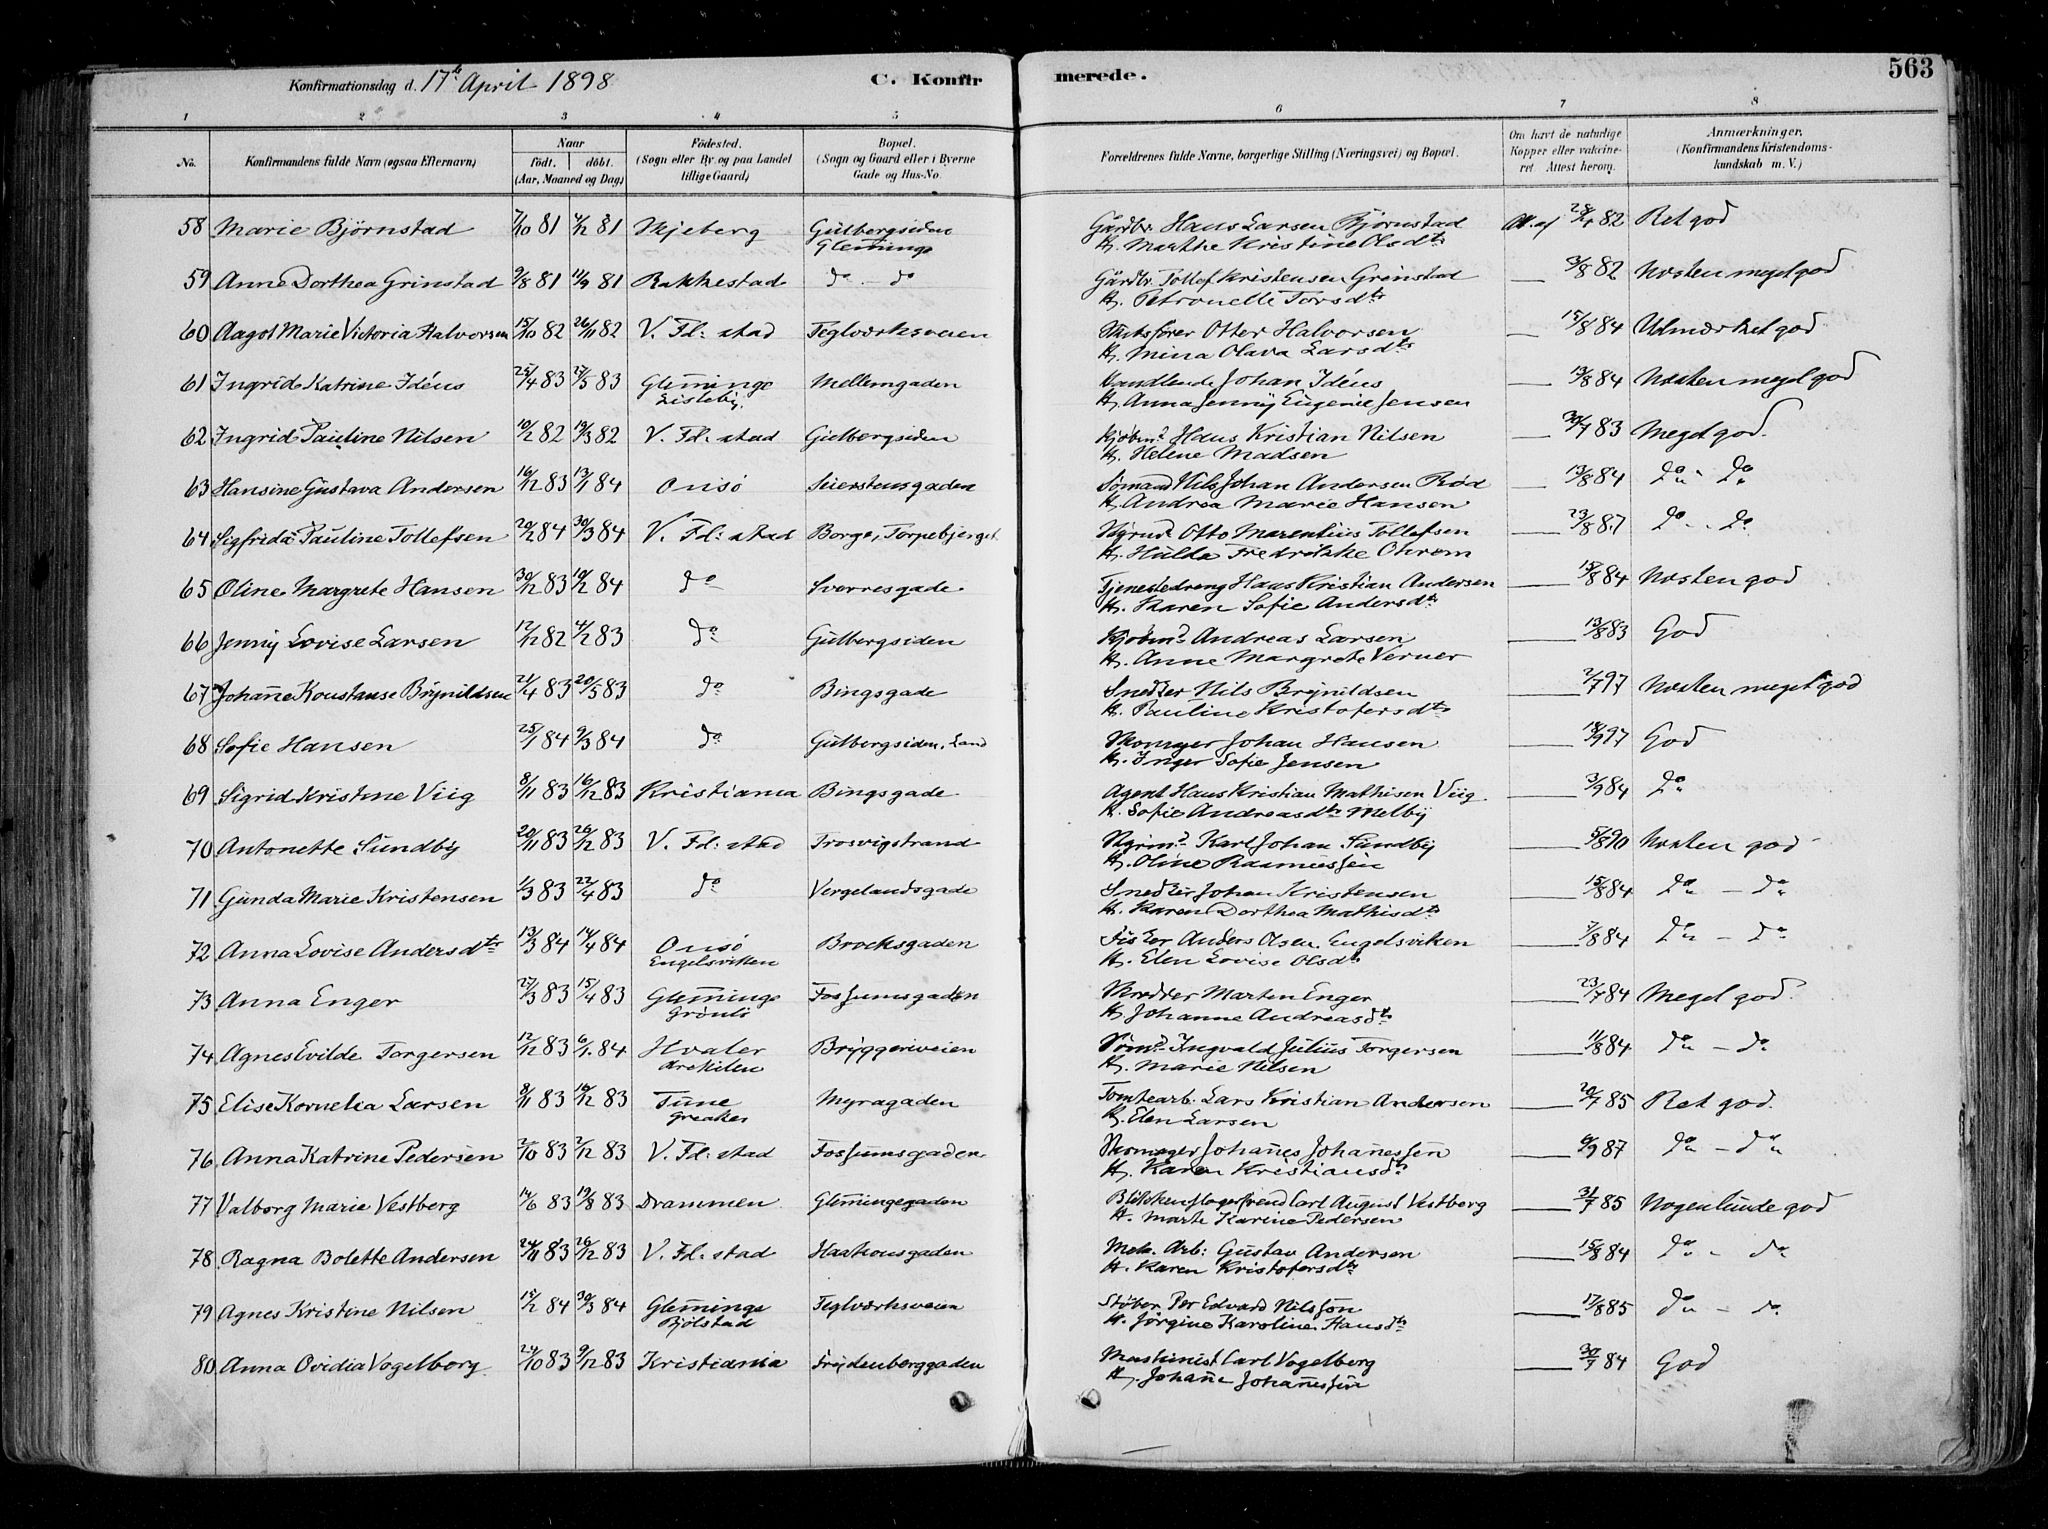 Konfirmationsdag d. 17de April 1898
C. Konfirmerede.
563
1 2 3 4 5 6 7 8
No. Konfirmandens fulde Navn (ogsaa Efternavn) Naar født. døbt. (Aar, Maaned og Dag) Fødested. (Sogn eller By og paa Landet tillige Gaard) Bopæl. (Sogn og Gaard eller i Byerne Gade og Hus-No. Forældrenes fulde Navne, borgerlige Stilling (Næringsvei) og Bopæl. Om havt de naturlige Kopper eller vaccineret. Attest herom. Anmærkninger. (Konfirmandens Kristendomskundskab m. V.)
58 Marie Bjørnstad 7/10 81 4/12 81 Skjeberg Gulbergsiden Gårdbr. Hans Larsen Bjørnstad Att. af 28/4 82 Ret god
Glemminge H. Marthe Kristine Olsdtr
59 Anne Dorthea Grinstad 9/8 81 11/9 81 Rakkestad do - do Gårdbr. Tollef Kristensen Grinstad — 3/8 82 Næsten meget god
H. Petronelle Torsdtr
60 Aagot Marie Victoria Halvorsen 15/10 82 26/11 82 V. Fl: stad Teglværksveien Skibsfører Otter Halvorsen — 15/8 84 Udmærket god
H. Mina Olava Larsdtr
61 Ingrid Katrine Idéus 25/4 83 27/5 83 Glemminge Mellemgaden Handlende Johan Idéus — 13/8 84 Næsten meget god
Lisleby. H. Anna Jenny Eugenie Jensen
62 Ingrid Pauline Nilsen 10/2 82 19/3 82 V. Fd: stad Gulbergsiden Kjøbmd Hans Kristian Nilsen — 30/7 83 Meget god.
H. Helene Madsen
63 Hansine Gustava Andersen 16/12 83 13/1 84 Onsø Seierstensgaden Sømand Nils Johan Andersen Rød — 13/8 84 do - do
H. Andrea Marie Hansen
64 Sigfrida Pauline Tollefsen 20/2 84 30/3 84 V. Fd: stad Borge, Torpebjerget Otto Marentius Tollefsen — 23/8 87 do - do
H. Hulda Fredrikke Ohrom
65 Oline Margrete Hansen 30/12 83 10/2 84 do Sverresgade Tjenestedreng Hans Kristian Andersen — 15/8 84 Næsten god
H. Karen Sofie Andersdtr
66 Jenny Lovise Larsen 12/12 82 4/2 83 do Gulbergsiden Kjøbmd Andreas Larsen — 13/8 83 God
H. Anne Margrete Verner
67 Johanne Konstanse Brynildsen 21/4 83 20/5 83 do Bingsgade Snedker Nils Brynildsen — 2/7 97 Næsten meget god
H. Pauline Kristofersdtr
68 Sofie Hansen 25/1 84 9/3 84 do Gulbergsiden, Land Skomager Johan Hansen — 18/9 97 God
H. Inger Sofie Jensen
69 Sigrid Kristine Viig 8/11 83 16/12 83 Kristiania Bingsgade Agent Hans Kristian Mathisen Viig — 3/9 84 do
H. Sofie Andreasdtr Melby
70 Antonette Sundby 20/11 83 26/12 83 V. Fd: stad Trosvigstrand Karl Johan Sundby — 5/8 90 Næsten god
H. Oline Rasmussen
71 Gunda Marie Kristensen 1/3 83 22/4 83 do Vergelandsgade Snedker Johan Kristensen — 15/8 84 do - do
H. Karen Dorthea Mathisdtr
72 Anna Lovise Andersdtr 13/3 84 14/4 84 Onsø Brocksgaden Fisker Anders Olsen Engelsviken — 7/8 84 do - do
Engelsviken H. Elen Lovise Olsdtr
73 Anna Enger 27/3 83 15/4 83 Glemminge Fossumsgaden Skredder Marten Enger — 23/7 84 Meget god.
Grønli H. Johanne Andreasdtr
74 Agnes Evilde Torgersen 12/12 83 6/1 84 Hvaler Bryggeriveien Sømd Ingvald Julius Torgersen — 11/8 84 do - do
Arekilen H. Marie Nilsen
75 Elise Kornelia Larsen 8/11 83 16/12 83 Tune Myragaden Tomtearb. Lars Kristian Andersen — 20/7 85 Ret god.
Greaker H. Elen Larsen
76 Anna Katrine Pedersen 2/10 83 2/12 83 V. Fd: stad Fossumsgaden Skomager Johannes Johannessen — 6/9 87 do - do
H. Karen Kristiansdtr
77 Valborg Marie Vestberg 14/6 83 19/8 83 Drammen Glemmingegaden Blikkenslagersvend Carl August Vestberg — 31/7 85 Nogenlunde god
H. Marte Karine Pedersen
78 Ragna Bolette Andersen 24/11 83 26/12 83 V. Fl: stad Haakonsgaden Mek. Arb: Gustav Andersen — 15/8 84 do - do
H. Karen Kristofersdtr
79 Agnes Kristine Nilsen 15/2 84 30/3 84 Glemminge Teglværksveien Støber Per Edvard Nilsson — 17/8 85 do - do
Bjølstad H. Jørgine Karoline Hansdtr
80 Anna Ovidia Vogelborg 24/10 83 9/12 83 Kristiania Frydenberggaden Maskinist Carl Vogelborg — 30/7 84 God
H. Johanne Johannessen